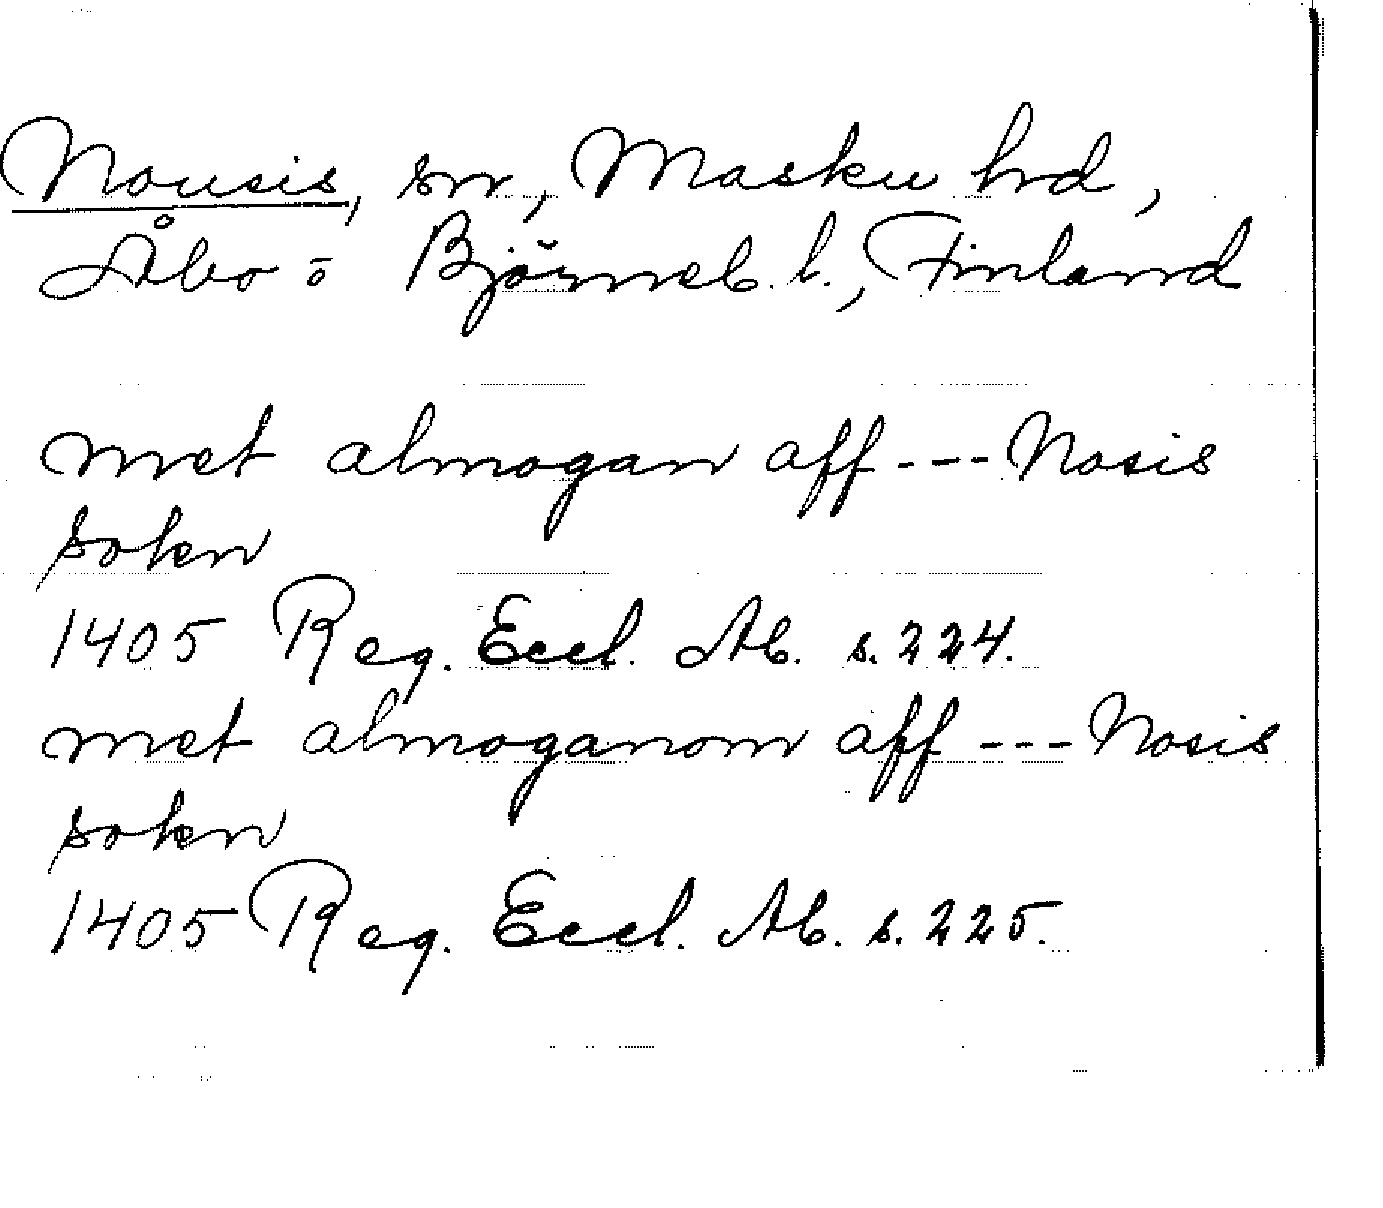 Nousis, sn, Masku hrd,
Åbo o Björneb. l., Finland
met almogan aff --- Nosis
sokn
1405 Reg. Eccl. Ab. s. 224.
met almoganom aff --- Nosis
sokn
1405 Reg. Eccl. Ab. s. 225.